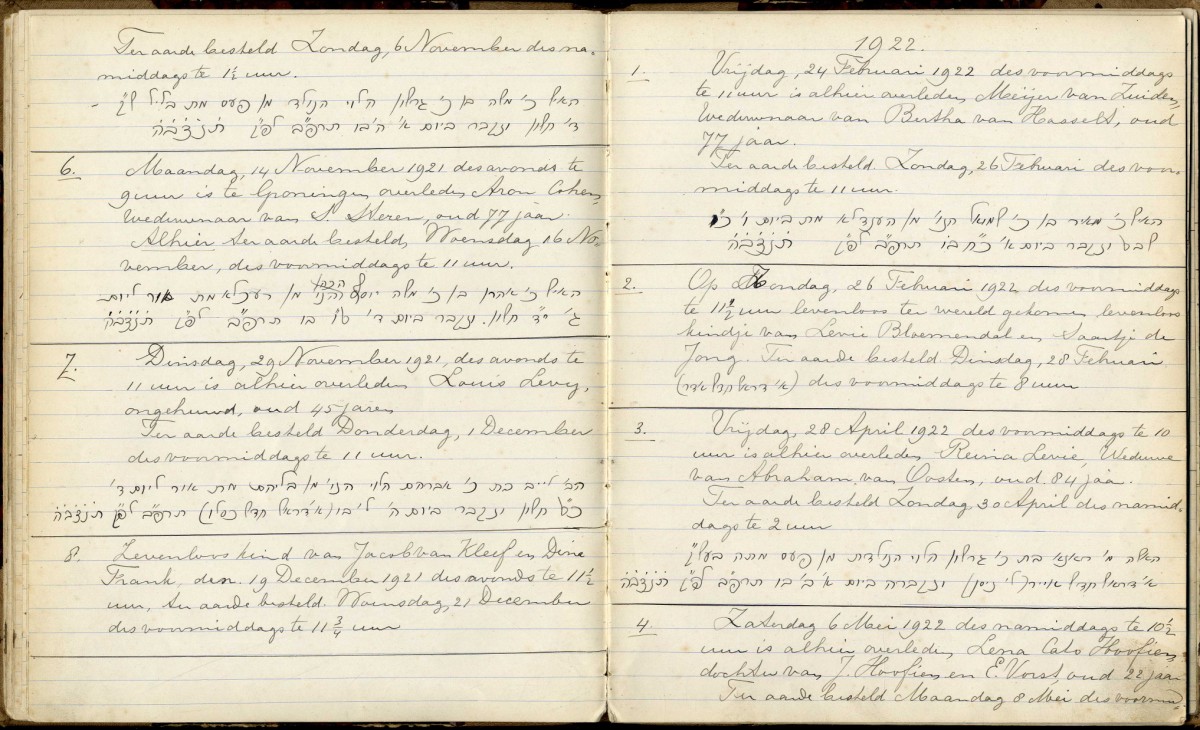 Ter aarde besteld Zondag, 6 November des na-
middags te 1½ uur.
האיש כ' משה בן כ' גרשון הלוי הנולד מן פעס מת בליל ש"ק
ד' חשון ונקבר ביום א' ה' בו תרפ"ב לפ"ק תנצב"ה
6. Maandag, 14 November 1921 des avonds te
9 uur is te Groningen overleden Aron Cohen,
Weduwnaar van S. Steren, oud 77 jaar.
Alhier ter aarde besteld, Woensdag 16 No-
vember, des voormiddags te 11 uur.
האיש כ' אהרן בן כ' משה יוסף הכהן מן רעכלא מת אור ליום
ג' י"ד חשון. ונקבר ביום ד' ט"ו בו תרפ"ב לפ"ק תנצב"ה
7. Dinsdag, 29 November 1921, des avonds te
11 uur is alhier overleden Louis Levy,
ongehuwd, oud 45 jaren
Ter aarde besteld Donderdag, 1 December
des voormiddags te 11 uur.
אברהם הלוי מת אור ליום ד'
כ"ט חשון ונקבר ביום ה' ל' בו (א' דראש חדש כסלו) תרפ"ב לפ"ק תנצב"ה
8. Levenloos kind van Jacob van Kleef en Dina
Frank, den 19 December 1921 des avonds te 11½
uur, ter aarde besteld. Woensdag, 21 December
des voormiddags te 11¾ uur
1922.
1. Vrijdag, 24 Februari 1922 des voormiddags
te 11 uur is alhier overleden Meijer van Zuiden,
Weduwnaar van Bertha van Hasselt, oud
77 jaar.
Ter aarde besteld. Zondag, 26 Februari des voor-
middags te 11 uur.
האיש כ' מאיר בן כ' שמואל מן הענדלא מת ביום ו' כ"ו
שבט ונקבר ביום א' כ"ח בו תרפ"ב לפ"ק תנצב"ה
2. Op Zondag, 26 Februari 1922 des voormiddags
te 11½ uur levenloos ter wereld gekomen levenloos
kindje van Levie Bloemendal en Saartje de
Jong. Ter aarde besteld Dinsdag, 28 Februari
(א' דראש חדש אדר) des voormiddags te 8 uur
3. Vrijdag, 28 April 1922 des voormiddags te 10
uur is alhier overleden Reina Levie, Weduwe
van Abraham van Oosten, oud 84 jaar.
Ter aarde besteld Zondag 30 April des namid-
dags te 2 uur
האשה מ' בת כ' גרשון הלוי הנולדת מן פעס מתה בעש"ק
א' דראש חדש אייר (ל' ניסן) ונקברה ביום א' ב' בו תרפ"ב לפ"ק תנצב"ה
4. Zaterdag 6 Mei 1922 des namiddags te 10½
uur is alhier overleden, Lena Cato Hoofiens,
dochter van J. Hoofiens en E. Vorst, oud 22 jaar
Ter aarde besteld Maandag 8 Mei des voormid-